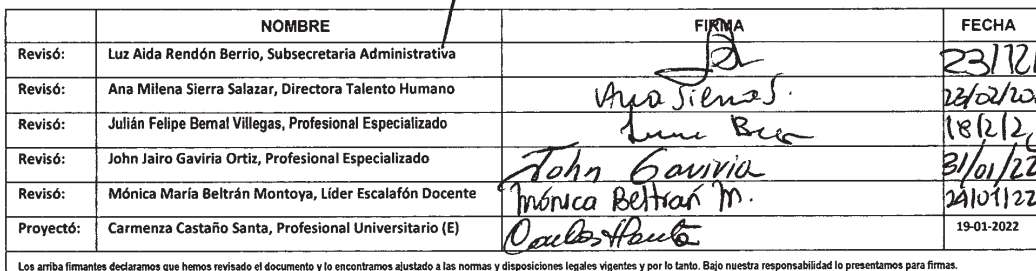 NOMBRE FIRMA FECHA
Revisó: Luz Aida Rendón Berrio, Subsecretaria Administrativa
Revisó: Ana Milena Sierra Salazar, Directora Talento Humano Ana Sierra S. 23/02/20
Revisó: Julián Felipe Bernal Villegas, Profesional Especializado 18/2/2
Revisó: John Jairo Gaviria Ortiz, Profesional Especializado John Gaviria 31/01/22
Revisó: Mónica María Beltrán Montoya, Líder Escalafón Docente Mónica Beltrán M. 24/01/22
Proyectó: Carmenza Castaño Santa, Profesional Universitario (E) 19-01-2022
Los arriba firmantes declaramos que hemos revisado el documento y lo encontramos ajustado a las normas y disposiciones legales vigentes y por lo tanto. Bajo nuestra responsabilidad lo presentamos para firmas.